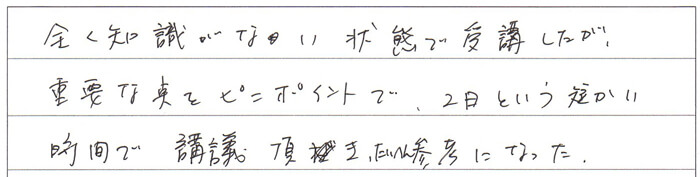 全く知識がない状態で受講したが、
重要な点をピンポイントで、2日という短かい
時間で講義頂き、たいへん参考になった。